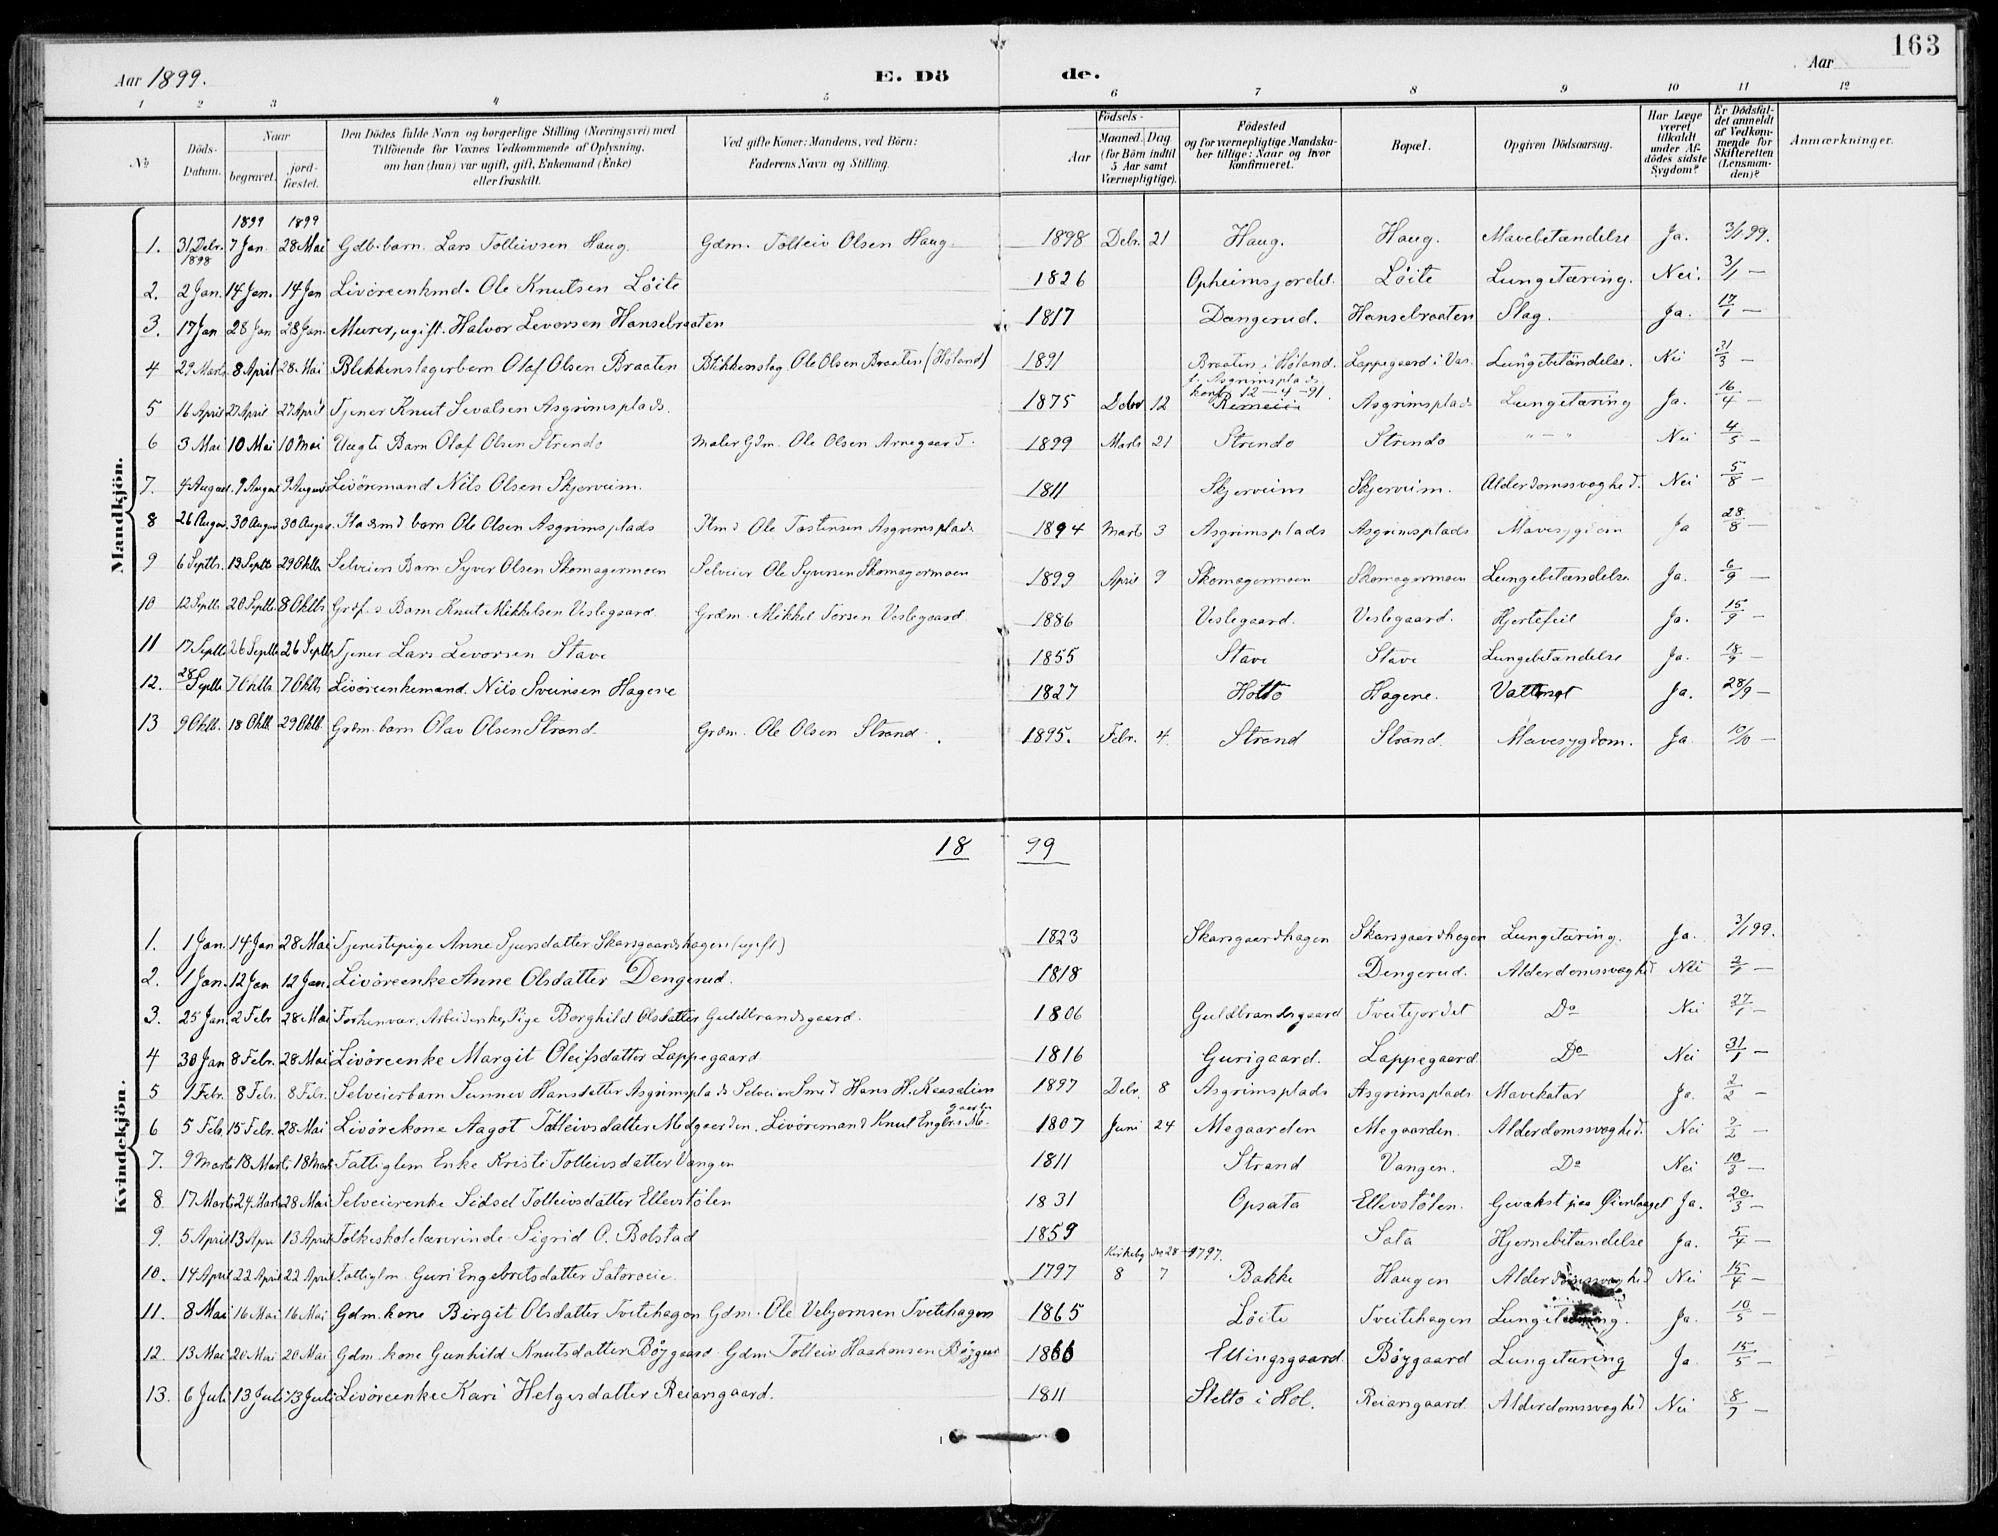 163
Aar 1899.
E. Dö de.
Aar
1 2 3 4 5 6 7 8 9 10 11 12
No
Döds-Datum.
Naar
begravet.
jord-fæstet.
Den Dödes fulde Navn og borgerlige Stilling (Næringsvei) med Tilföiende for Voxnes Vedkommende af Oplysning, om han (hun) var ugift, gift, Enkemand (Enke) eller fraskilt.
Ved gifte Koner: Mandens, ved Börn: Faderens Navn og Stilling.
Födsels-
Aar
Maaned. Dag
(for Börn indtil 5 Aar samt Værnepligtige).
Födested og for værnepligtige Mandskaber tillige: Naar og hvor konfirmeret.
Bopæl.
Opgiven Dödsaarsag.
Har Læge været tilkaldt under Afdödes sidste Sygdom?
Er Dödsfaldet anmeldt af Vedkommende for Skifteretten (Lensmanden)?
Anmærkninger.
Mandkjön.
1899 1899
1. 31 Debr. 1898 7 Jan. 28 Mai Gdb. barn Lars Tolleivsen Haug. Gdm. Tolleiv Olsen Haug. 1898 Debr. 21 Haug. Haug. Mavebetændelse Ja. 3/1 99.
2. 2 Jan. 14 Jan. 14 Jan Livöreenkmd. Ole Knutsen Löite 1826 Opheimsjordet. Löite Lungetæring. Nei. 3/1 —
3. 17 Jan 28 Jan 28 Jan. Murer, ugift. Halvor Levorsen Hansebraaten 1817 Dængerud. Hansebraaten Slag. Ja. 17/1 —
4 29 Marts 8 April 28 Mai Blikkenslagerbarn Olaf Olsen Braaten Blikkenslag. Ole Olsen Braaten (Holand) 1891 Braaten i Höland. Lappegaard i Vas. Lungebetændelse. Nei 31/3 —
5 16 April 27 April 27 April Tjener Knut Sevatsen Asgrimsplads. 1875 Debr 12 f. Asgrimsplads konf. 12-4-91. Asgrimsplads Lungetæring Ja. 16/4 —
6 3 Mai 10 Mai 10 Mai Uægte Barn Olaf Olsen Strendo Maler Gdm. Ole Olsen Arnegaard. 1899 Marts 21 Strendo Strendo " — " Nei 4/5 —
7. 4 August 9 August 9 August Livöremand Nils Olsen Skjerveim. 1811 Skjerveim Skjerveim. Alderdomssvaghed. Nei 5/8 —
8 26 Augus. 30 Augus 30 Augus. Husmd barn Ole Olsen Asgrimsplads Hmd Ole Tostensen Asgrimsplads 1894 Marts 3 Asgrimsplads Asgrimsplads Mavesygdom Ja 28/8 —
9 6 Septbr. 13 Septb 29 Oktb Selveiers Barn Syver Olsen Skomagermoen Selveier Ole Syversen Skomagermoen 1899 April 9 Skomagermoen Skomagermoen Lungebetændelse Ja. 6/9 —
10 12 Septb 20 Septb 8 Oktb Grdf.s Barn Knut Mikkelsen Veslegaard. Grdm. Mikkel Torsen Veslegaard 1886 Veslegaard. Veslegaard. Hjertefeil Ja. 15/9 —
11 17 Septb 26 Septb 26 Septb Tjener Lars Levorsen Stave 1855 Stave Stave Lungebetændelse Ja. 18/9 —
12. 28 Septb 7 Oktb 7 Oktb Livöreenkemand. Nils Sveinsen Hagene 1827 Holto Hagene. Vattersot Ja. 28/9 —
13 9 Oktb. 18 Oktb 29 Oktb Grdm. barn Olav Olsen Strand. Grdm. Ole Olsen Strand. 1895. Febr. 4. Strand Strand Mavesygdom. Ja 10/10 —
18 99
Kvindekjön.
1. 1 Jan. 14 Jan 28 Mai Tjenestepige Anne Sjursdatter Skarsgaardshagen (ugift) 1823 Skarsgaardhagen Skarsgaardhagen Lungetæring. Ja. 3/1 99.
2. 1 Jan. 12 Jan 12 Jan. Livöreenke Anne Olsdatter Dengerud. 1818 Dengerud. Alderdomssvaghed Nei —
3. 25 Jan. 2 Febr. 28 Mai Forhenvær. Pige Borghild Olsdatter Guldbrandsgaard. 1806 Guldbrandsgaard Tveitejordet Do Nei 27/1 —
4 30 Jan 8 Febr. 28 Mai Livöreenke Margit Oleifsdatter Lappegaard 1816 Gurigaard. Lappegaard Do Nei 31/1 —
5 1 Febr. 8 Febr. 8 Febr. Selveierbarn Sunnev Hansdatter Asgrimsplads Selveier Smed Hans H. Kaasalien 1897 Debr. 8 Asgrimsplads Asgrimsplads Mavekatar Ja. 2/2 —
6 5 Febr. 15 Febr. 28 Mai Livörekone Aagot Tolleivsdatter Medgaarden. Livöremand Knut Engbr.s Me-gaarden 1807 Juni 24 Megaarden Megaarden. Alderdomssvaghed. Nei 9/2 —
7. 9 Marts 18 Marts 18 Marts Fattiglem Enke Kristi Tolleivsdatter Vangen 1811 Strand Vangen. Do Nei 10/3 —
8 17 Marts 24 Marts 28 Mai Selveierenke Sidsel Tolleivsdatter Ellevstölen 1831 Opsata Ellevstölen. Gevækst paa Öienlaaget Ja. 20/3 —
9. 5 April 13 Apr 13 April Folkeskolelærerinde Sigrid O. Bolstad 1859 Sata Hjernebetændelse Ja. 5/4 —
Kirkebg No 28 - 1797.
10. 14 April 22 April 22 April Fattiglm. Guri Engebretsdatter Satoroeie. 1797 8 7 Bakke Haugen Alderdomssvaghed Nei 15/4 —
11. 8 Mai 16 Mai 16 Mai Gdm. kone Birgit Olsdatter Tveitehagen Gdm. Ole Vebjornsen Tveitehagen 1865 Löite Tveitehagen Lungetæring. Ja. 10/5 —
12. 13 Mai 20 Mai 20 Mai Gdm. kone Gunhild Knutsdatter Böygaard Gdm Tolleiv Haakonsen Böygaard 1866 Ellingsgaard. Böygaard Lungetæring Ja. 15/5 —
13. 6 Juli 13 Juli 13 Juli Livöreenke Kari Helgesdatter Reiarsgaard. 1811 Sletto i Hol. Reiarsgaard Alderdomssvaghed Nei 8/7 —